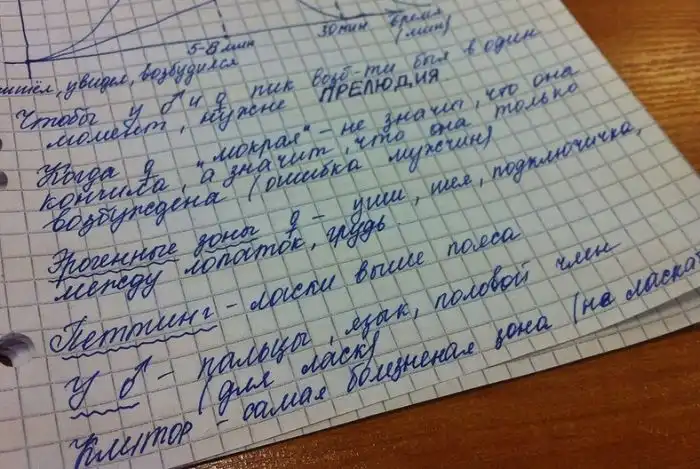 5-8 мин
30 мин
время
(мин)
увидел, возбудился
Чтобы у ♂ и ♀ пик возб-ти был в один
момент, нужне ПРЕЛЮДИЯ
Когда ♀ "мокрая" - не значит, что она
кончила, а значит, что она только
возбуждена (ошибка мужчин)
Эрогенные зоны ♀ - уши, шея, подключичка,
между лопаток, грудь
Петтинг - ласки выше пояса
У ♂ - пальцы, язык, половой член
(для ласк)
Клитор - самая болезненая зона (не ласкат